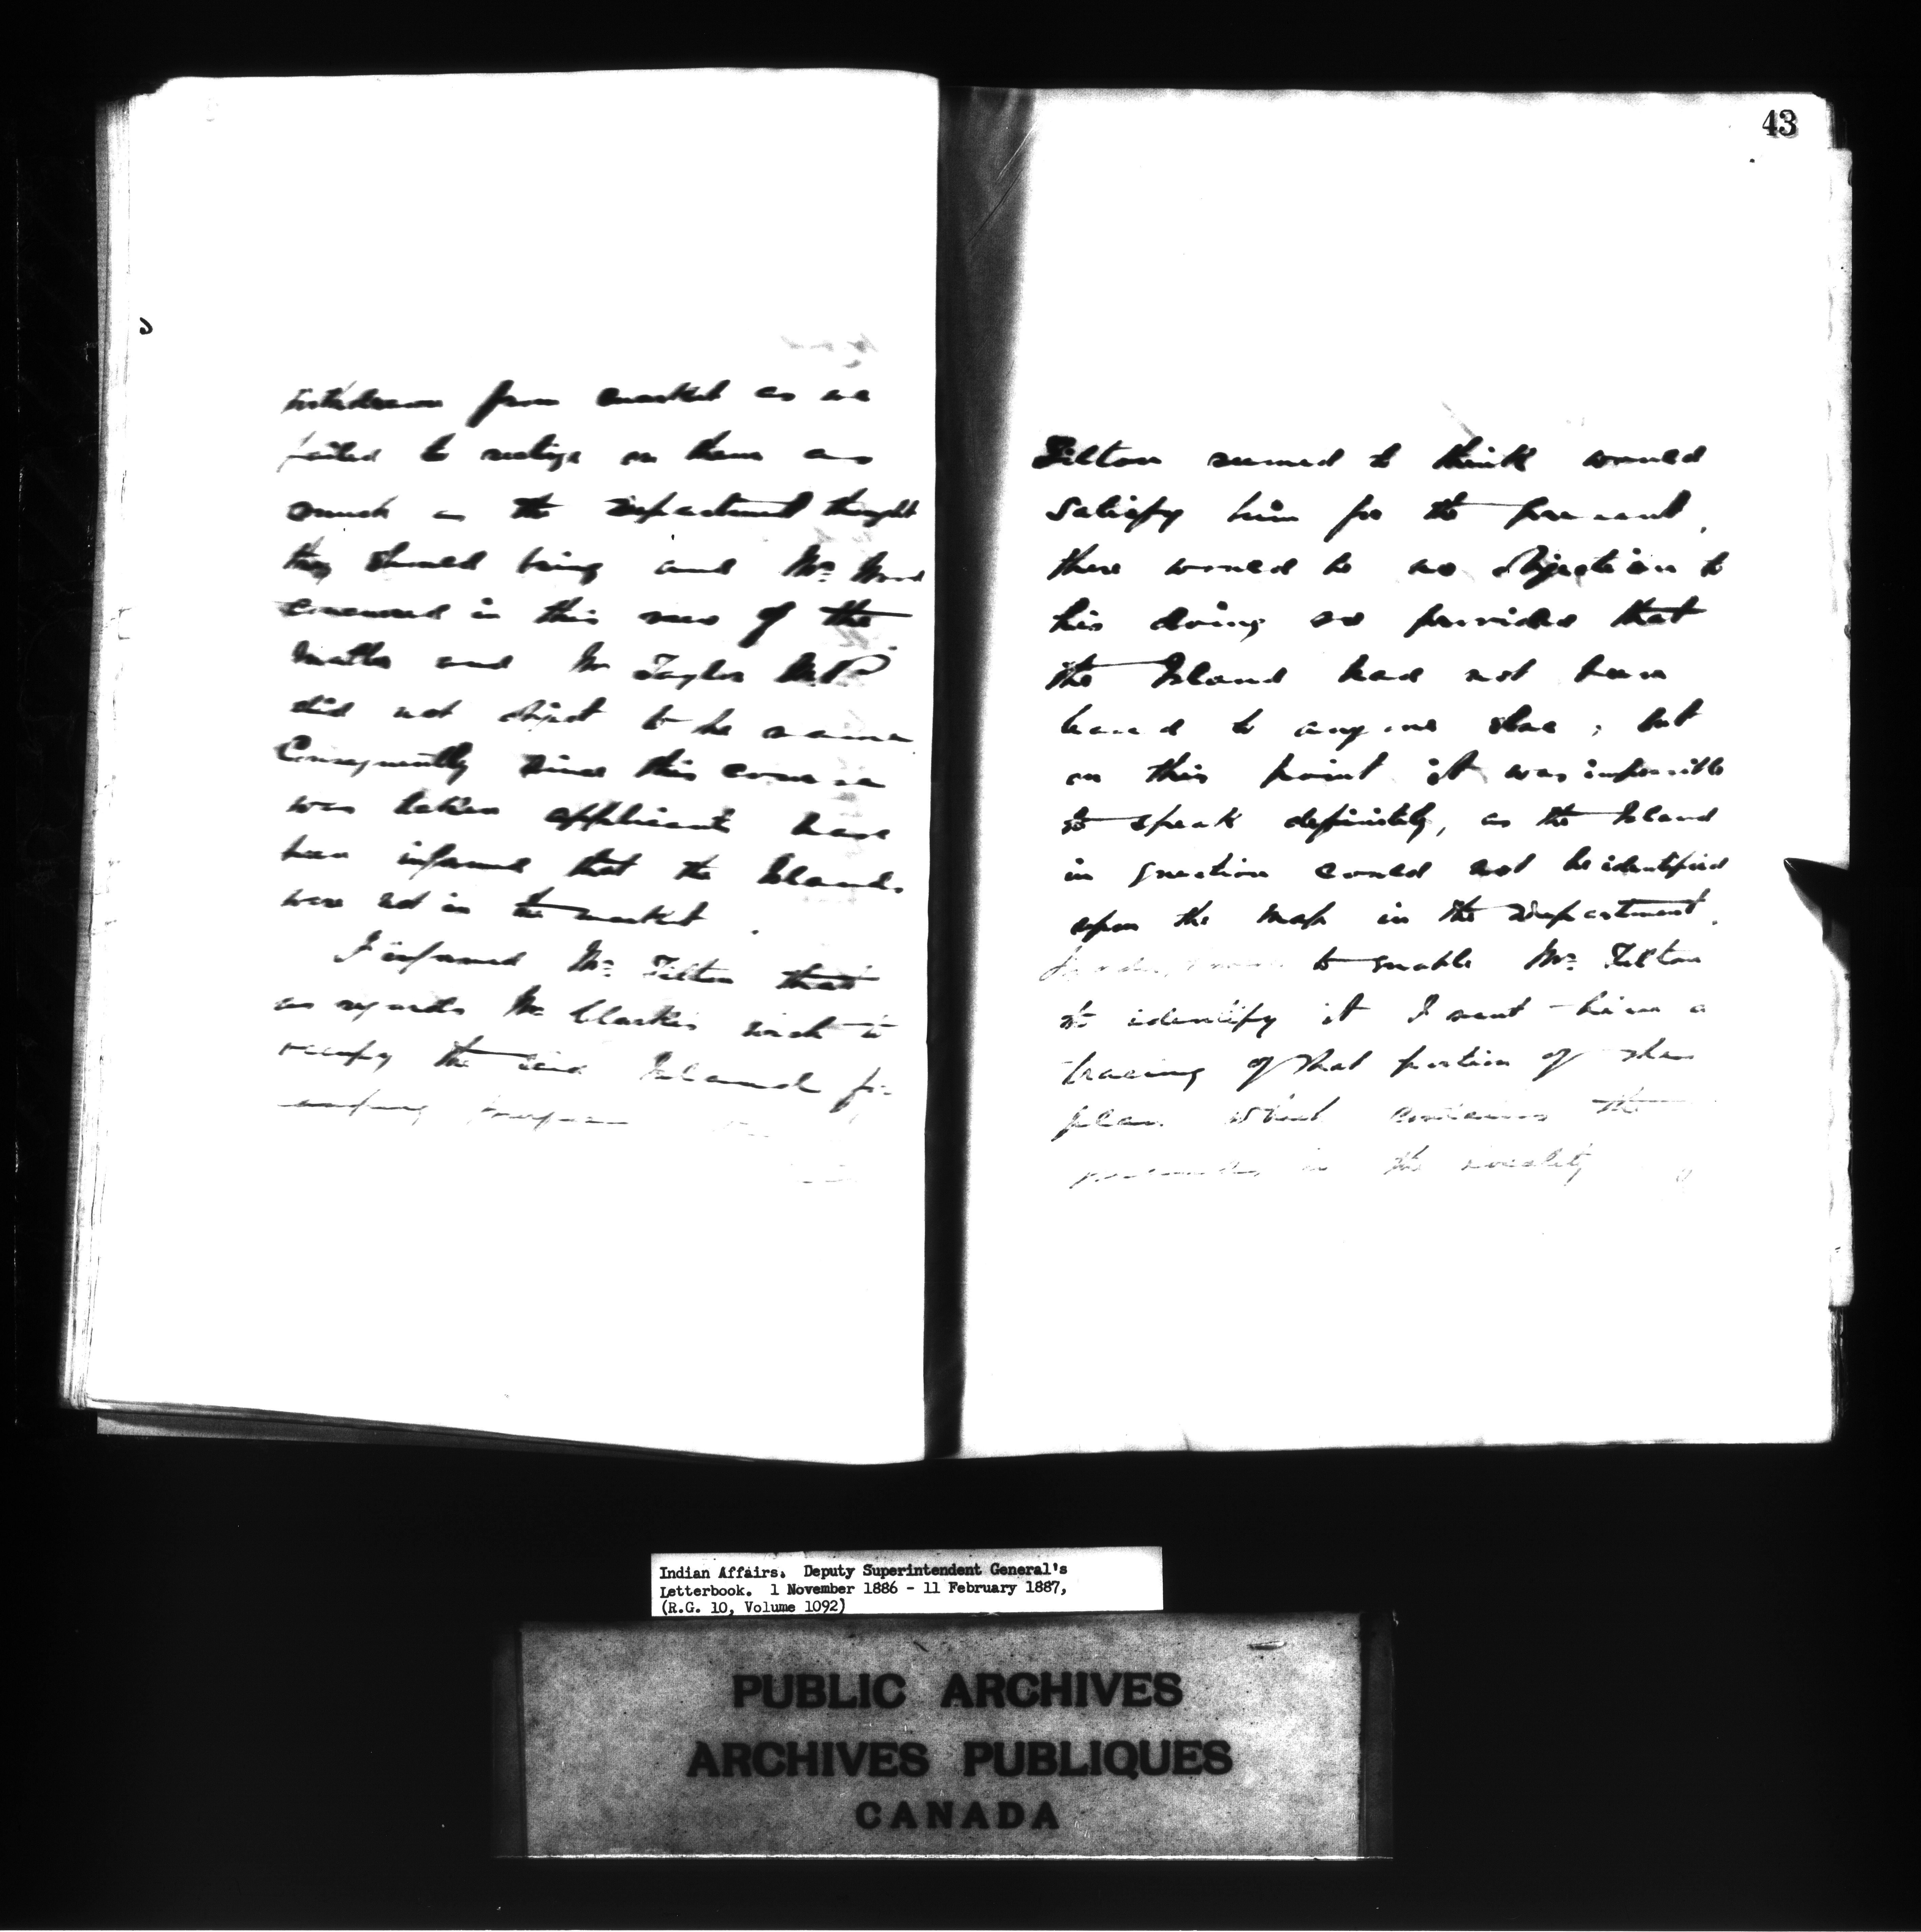 withdrawn from market as we
failed to realize on them as
much as the Department thought
they should bring and Mr. Wood
concurred in this view of the
matter and Mr Taylor M.P.
did not object to the same.
Consequently since this course
was taken applicants have
been informed that the Islands
were not in the market.
I informed Mr. Tilton that
as regards Mr Clarke's wish to
occupy the said Island for
camping purposes
43
Tilton seemed to think would
satisfy him for the present,
there would be no objection to
his doing so provided that
the Island had not been
leased to anyone else; but
on this point it was impossible
to speak definitely, as the Island
in question could not be identified
upon the map in the Department.
to enable Mr. Tilton
to identify it I sent him a
tracing of that portion of the
plan which contains the
in the locality
Indian Affairs. Deputy Superintendent General's
Letterbook. 1 November 1886 - 11 February 1887,
(R.G. 10, Volume 1092)
PUBLIC ARCHIVES
ARCHIVES PUBLIQUES
CANADA